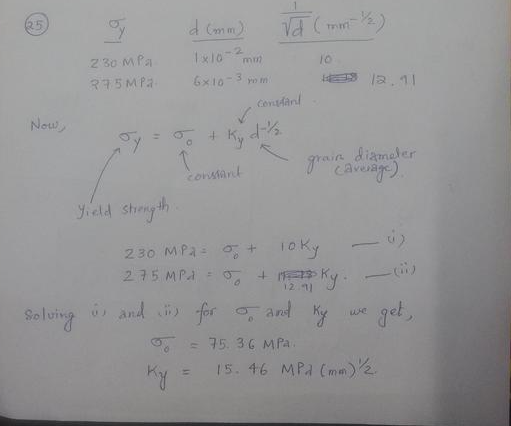 25
σy d (mm) 1/√d (mm-1/2)
230 MPa 1x10-2 mm 10
275 MPa 6x10-3 mm 12.91
constant.
Now,
σy = σo + Ky d-1/2
constant
grain diameter
(average).
Yield strength.
230 MPa = σo + 10 Ky — i)
275 MPa = σo + 12.91 Ky. — (ii)
Solving i) and (ii) for σo and Ky we get,
σo = 75.36 MPa.
Ky = 15.46 MPa (mm)1/2.